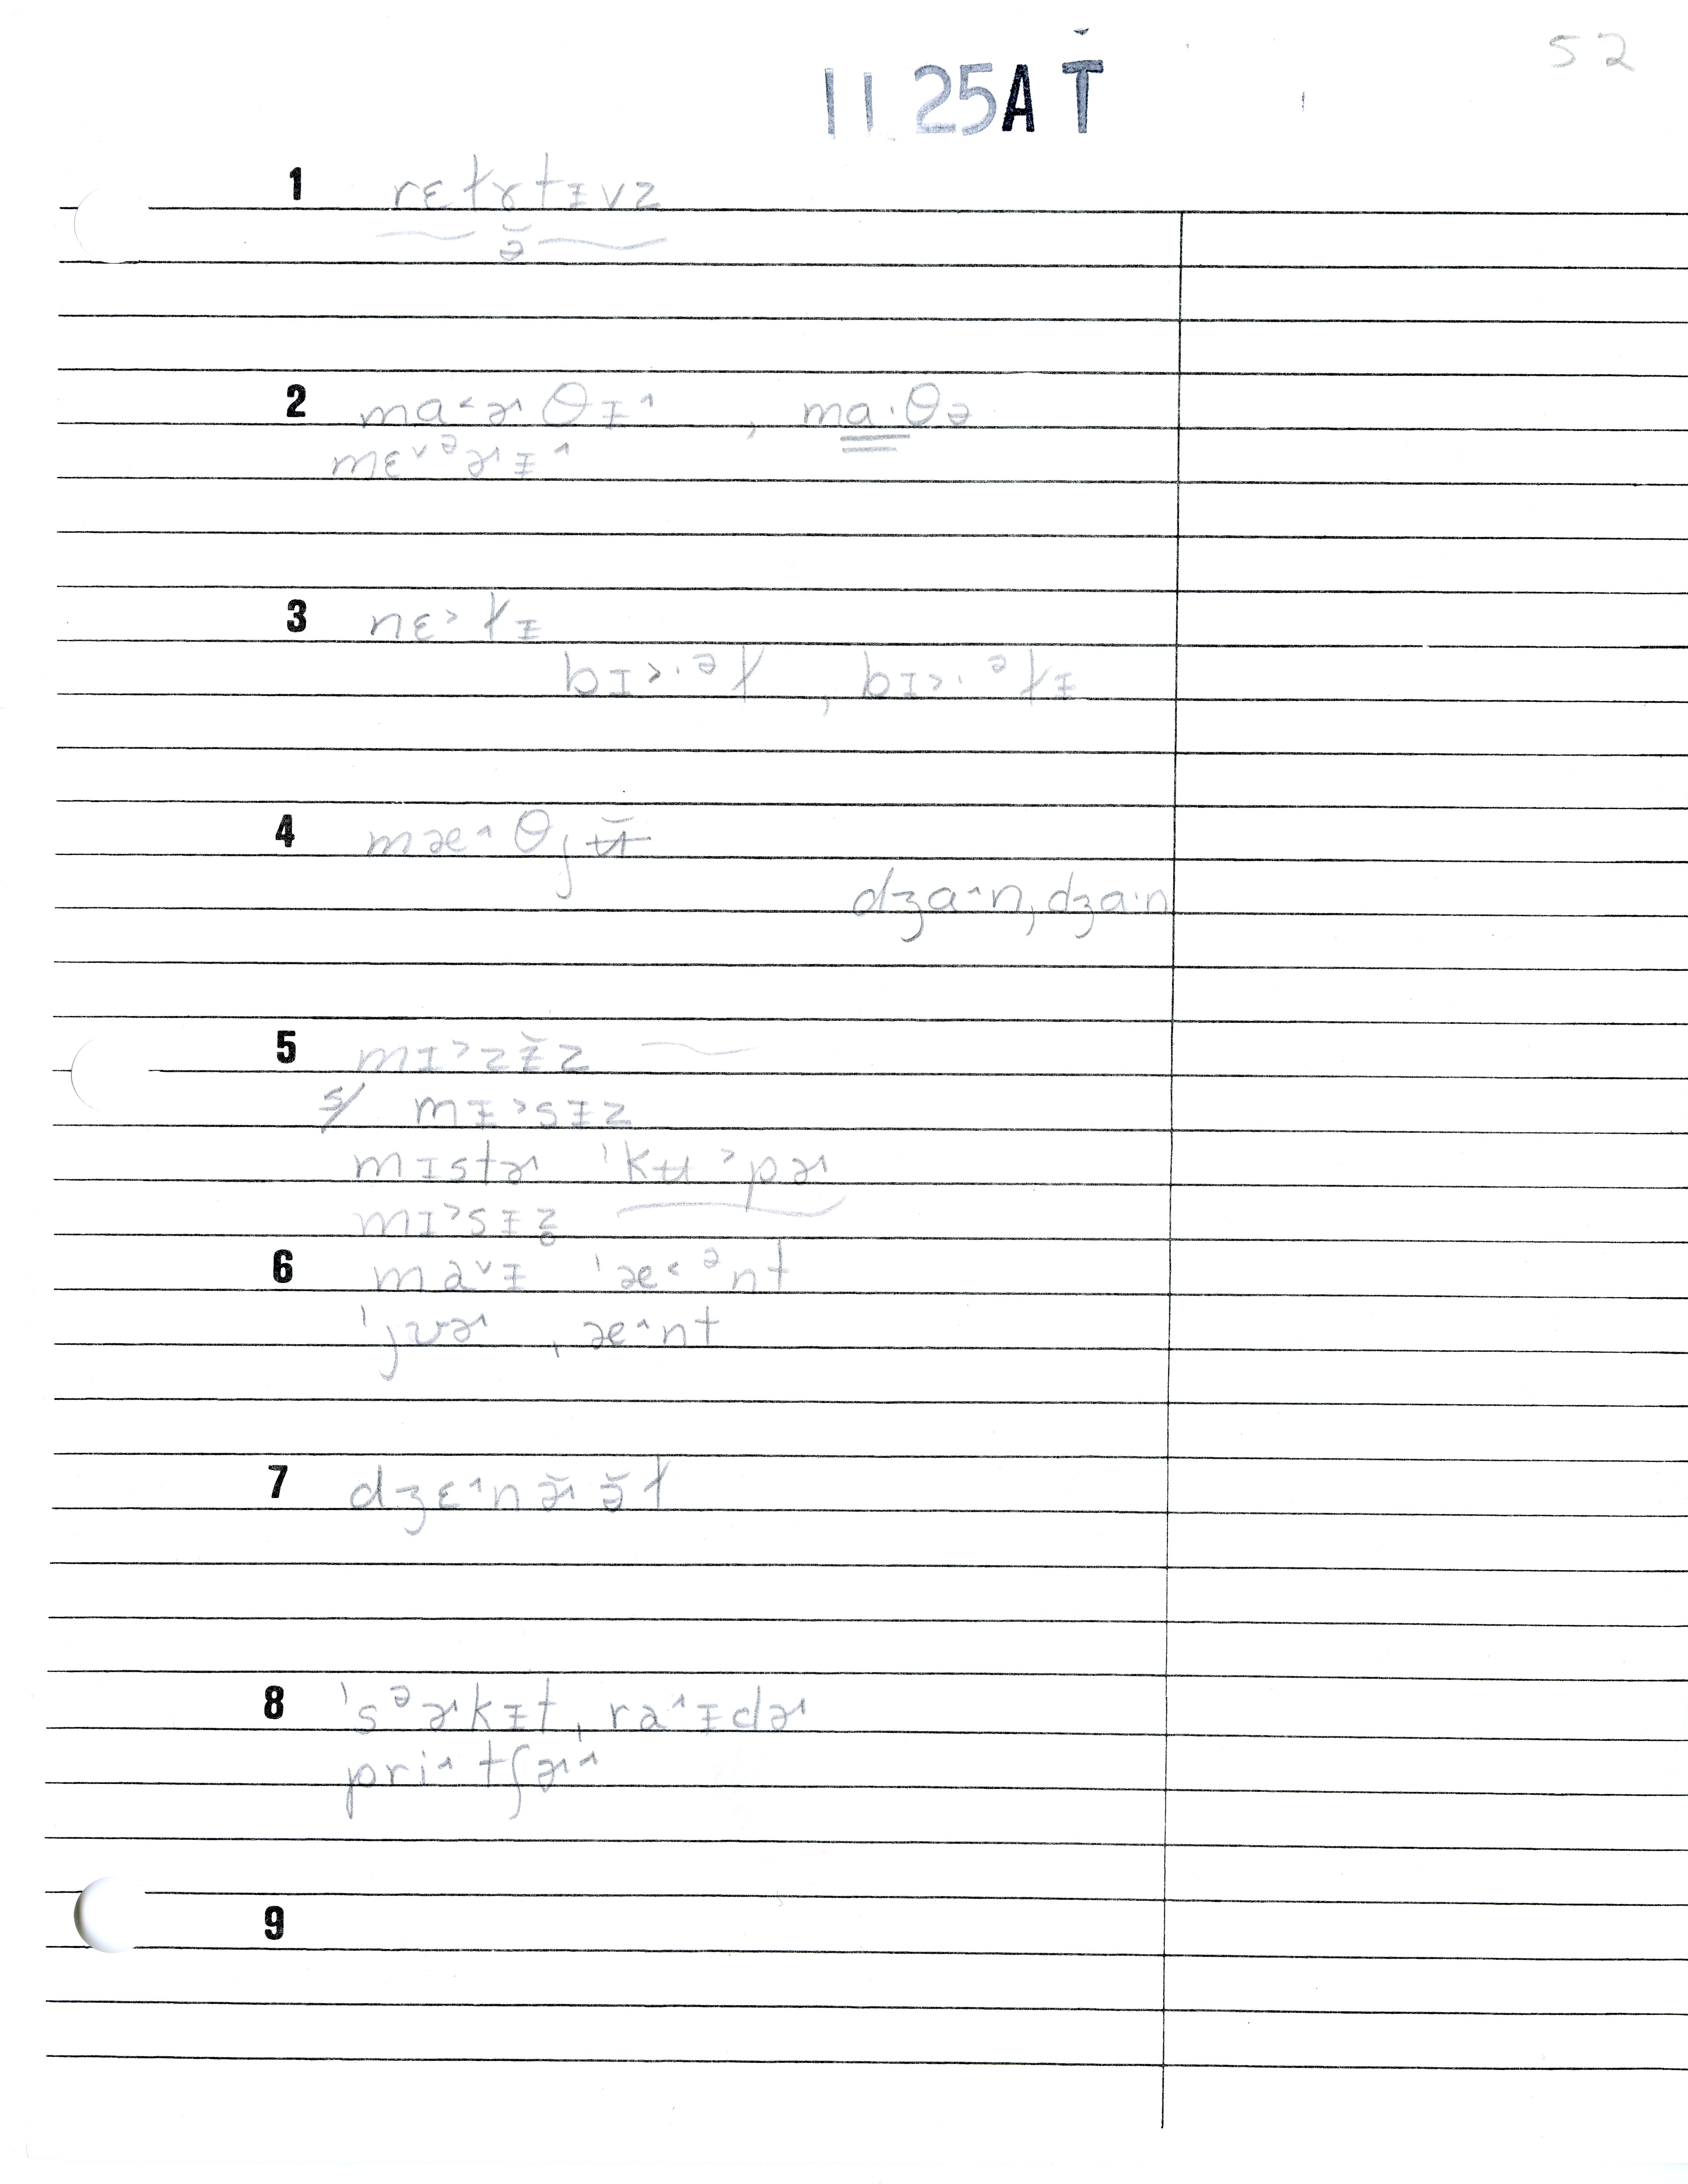 52
11 25A T̆
1 rɛɫɤtᵻvz
ə̆
2 mɑ˂ɚθᵻ˄ , mɑ·θə
mɛ˅ᵊɚᵻ˄
3 nɛ˃ɫᵻ
bɪ˃·ᵊɫ , bɪ˃·ᵊɫᵻ
4 mæ˄θjʉ̆
dʒɑ˄n, dʒɑ·n
5 mɪ˃zᵻ̆z
s/ mᵻ˃sᵻz
mɪstɚ ˈkʉ˃pɚ
mɪ˃sᵻz̥
6 ma˅ᵻ ˈæ˂ᵊnt
ˈjʊɚ ˌæ˄nt
7 dʒɛ˄nɚ̆ə̆ɫ
8 ˈsᵊɚkᵻt ˌra˄ᵻdɚ
pri˄tʃɚ˄
9